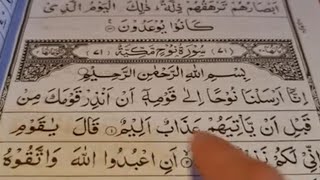 اَبْصَارُهُمْ تَرْهَقُهُمْ ذِلَّةٌ ذٰلِكَ الْيَوْمُ الَّذِيْ
كَانُوْا يُوْعَدُوْنَ
(٧١) سُوْرَةُ نُوْحٍ مَكِّيَّةٌ (٧١)
بِسْمِ اللهِ الرَّحْمٰنِ الرَّحِيْمِ
اِنَّاۤ اَرْسَلْنَا نُوْحًا اِلٰى قَوْمِهٖۤ اَنْ اَنْذِرْ قَوْمَكَ مِنْ
قَبْلِ اَنْ يَّاْتِيَهُمْ عَذَابٌ اَلِيْمٌ ١ قَالَ يٰقَوْمِ
اِنِّيْ لَكُمْ اَنِ اعْبُدُوا اللهَ وَاتَّقُوْهُ